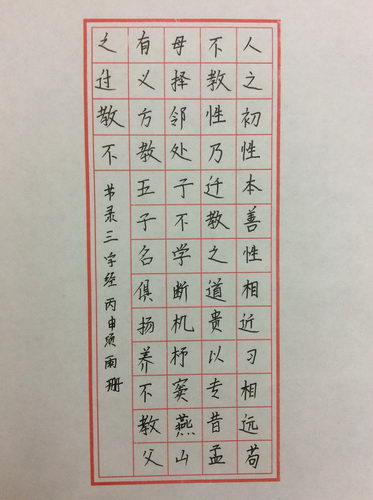 人之初性本善性相近习相远苟
不教性乃迁教之道贵以专昔孟
母择邻处子不学断机杼窦燕山
有义方教五子名俱扬养不教父
之过教不
节录三字经丙申